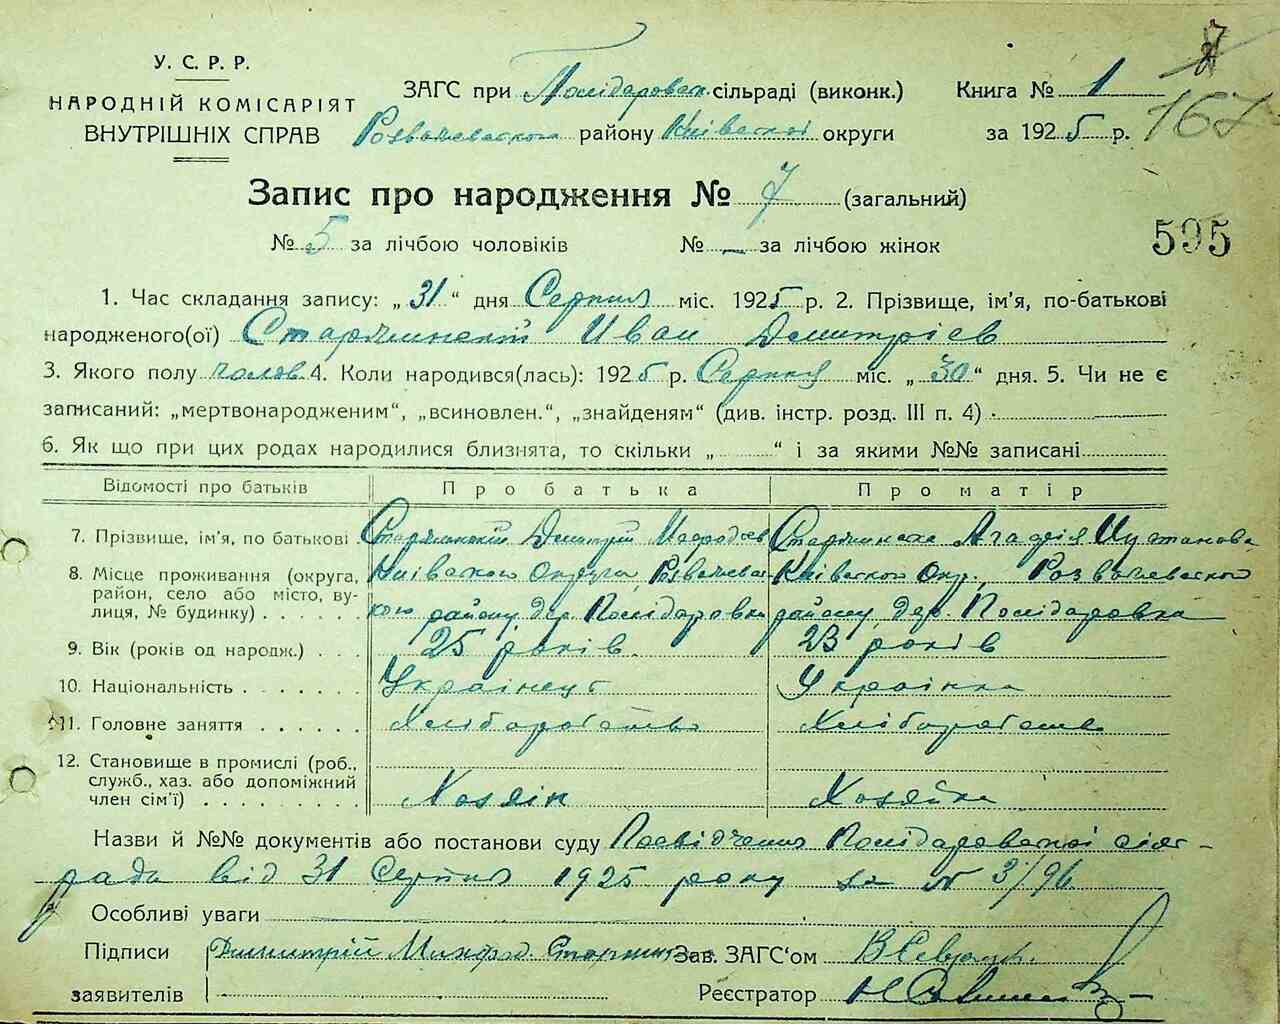 У. С. Р. Р.
НАРОДНІЙ КОМІСАРІЯТ
ВНУТРІШНІХ СПРАВ
ЗАГС при сільраді (виконк.)
Книга № 1
району Київської округи
за 1925 р.
167
Запис про народження № 7 (загальний)
№ 5 за лічбою чоловіків № — за лічбою жінок
595
1. Час складання запису: „31“ дня Серпня міс. 1925 р. 2. Прізвище, ім’я, по-батькові
народженого(ої) Иван Дмитріев
3. Якого полу чолов 4. Коли народився(лась): 1925 р. Серпня міс. „30“ дня. 5. Чи не є
записаний: „мертвонародженим“, „всиновлен.“, „знайденям“ (див. інстр. розд. III п. 4)
6. Як що при цих родах народилися близнята, то скільки „ “ і за якими №№ записані
Відомості про батьків Про батька Про матір
7. Прізвище, ім’я, по батькові Дмитрій
8. Місце проживання (округа, Київської Округи Київської Окр.,
район, село або місто, ву- району, дер. району, дер.
лиця, № будинку)
9. Вік (років од народж.) 25 років 23 років
10. Національність Українець Українка
11. Головне заняття Хліборобство Хліборобство
12. Становище в промислі (роб.,
служб., хаз. або допоміжний
член сім’ї) Хозяін Хозяйка
Назви й №№ документів або постанови суду Посвідчення сіль-
ради від 31 Серпня 1925 року за № 3/96
Особливі уваги
Підписи Зав. ЗАГС‘ом
заявителів Реєстратор